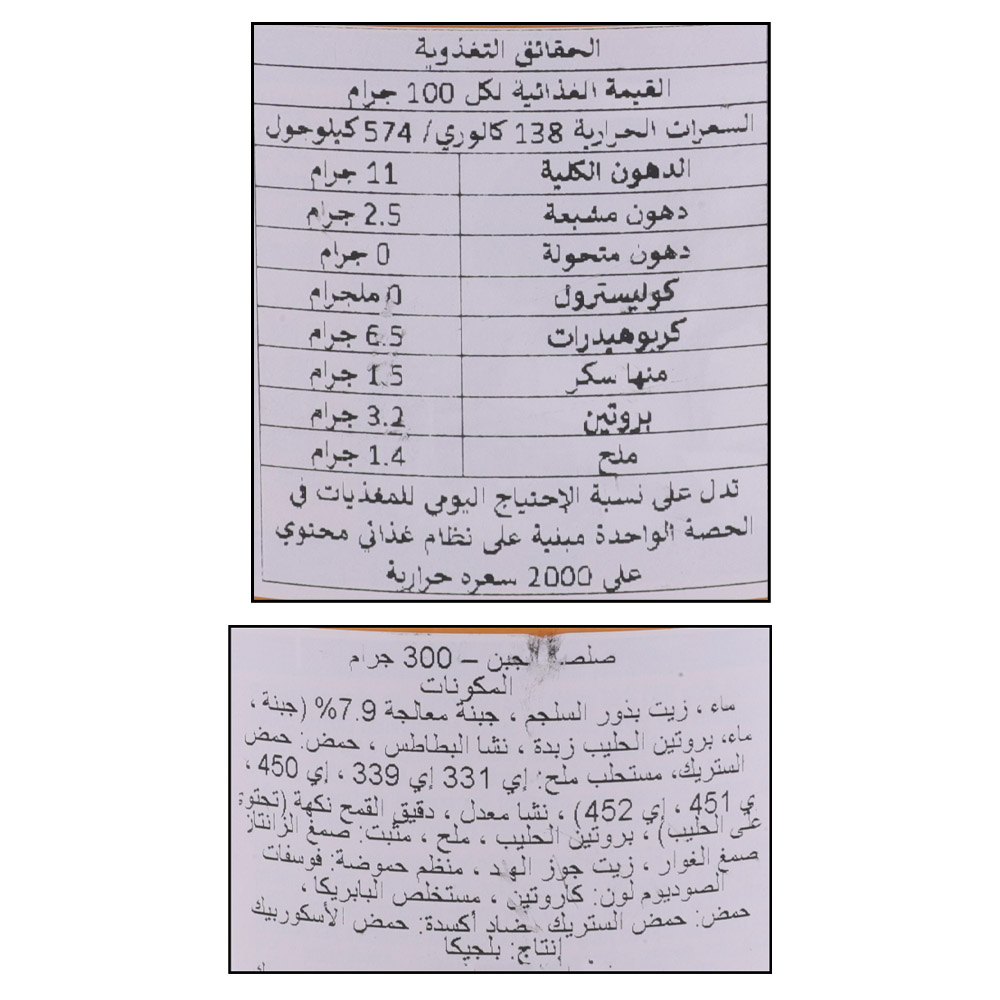 الحقائق التغذوية
القيمة الغذائية لكل 100 جرام
السعرات الحرارية 138 كالوري/ 574 كيلوجول
الدهون الكلية 11 جرام
دهون مشبعة 2.5 جرام
دهون متحولة 0 جرام
كوليسترول 0 ملجرام
كربوهيدرات 6.5 جرام
منها سكر 1.5 جرام
بروتين 3.2 جرام
ملح 1.4 جرام
تدل على نسبة الإحتياج اليومي للمغذيات في
الحصة الواحدة مبنية على نظام غذائي محتوي
على 2000 سعره حرارية
الجبن – 300 جرام
المكونات
ماء ، زيت بذور السلجم ، جبنة معالجة 7.9% (جبنة ،
ماء، بروتين الحليب زبدة ، نشا البطاطس ، حمض: حمض
الستريك، مستحلب ملح: إي 331 إي 339 ، إي 450 ،
ي 451 ، إي 452) ، نشا معدل ، دقيق القمح نكهة (تحتوة
على الحليب) ، بروتين الحليب ، ملح ، مثبت: صمغ الزانتاز
صمغ الغوار ، زيت جوز ، منظم حموضة: فوسفات
الصوديوم لون: كاروتين ، مستخلص البابريكا ،
حمض: حمض الستريك أكسدة: حمض الأسكوربيك
إنتاج: بلجيكا